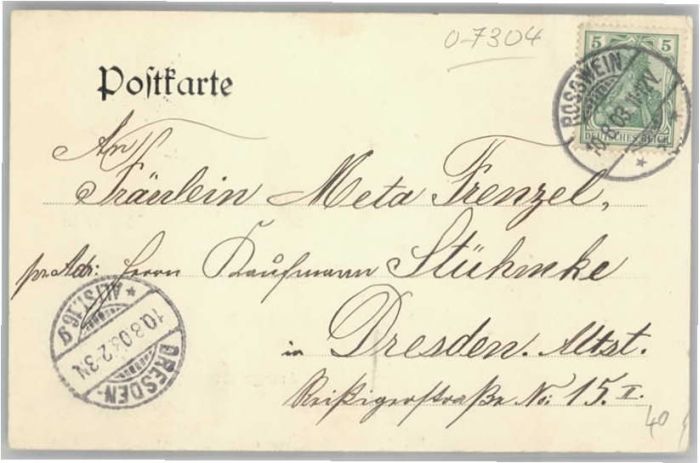 0-7304
Postkarte
5 5
DEUTSCHES REICH
ROSSWEIN
10.8.03. V
An
Fräulein Meta Frenzel,
pr. Adr: Herrn Kaufmann Stühmke
in Dresden. Altst.
Reißigerstraße No: 15. II.
DRESDEN-
ALTST. 16 g
10.8.03. 2-3N
40